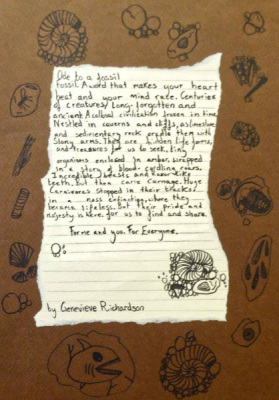 Ode to a fossil
fossil. A word that makes your heart
beat and your mind race. Centuries
of creatures/ long-forgotten and
ancient. A civilization frozen in time.
Nestled in caverns and cliffs, as
and sedimentary rock cradle them with
stony arms. They are hidden life forms,
and treasures for us to seek, tiny
organisms enclosed in amber, wrapped
in a story of blood-curdling roars.
Incredible beasts and razor-like
teeth, but then came Carnage. Huge
Carnivores stopped in their tracks.
in a mass extinction, where they
became lifeless. But their pride and
majesty is here, for us to find and share.
For me and you. For Everyone.
by Genevieve Richardson